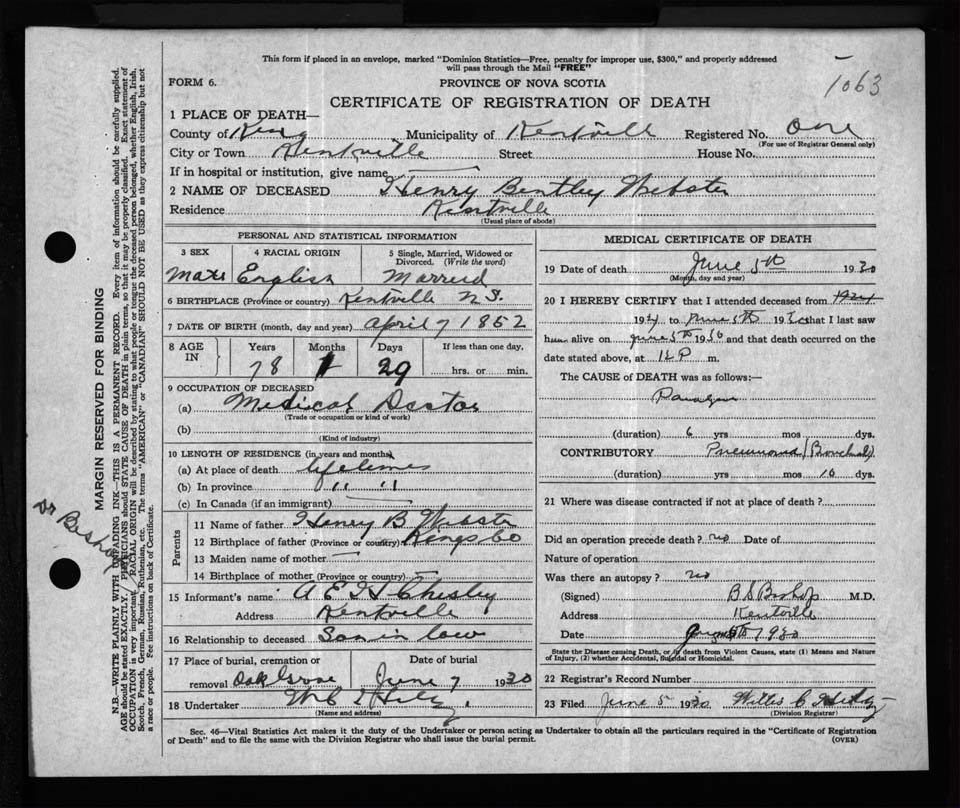 This form if placed in an envelope, marked "Dominion Statistics—Free, penalty for improper use, $300," and properly addressed
will pass through the Mail "FREE"
FORM 6.
PROVINCE OF NOVA SCOTIA
1063
CERTIFICATE OF REGISTRATION OF DEATH
1 PLACE OF DEATH—
County of Kings Municipality of Kentville Registered No. one
(For use of Registrar General only)
City or Town Kentville Street House No.
If in hospital or institution, give name
2 NAME OF DECEASED Henry Bentley Webster
Residence Kentville
(Usual place of abode)
PERSONAL AND STATISTICAL INFORMATION
3 SEX 4 RACIAL ORIGIN 5 Single, Married, Widowed or
Divorced. (Write the word)
Male English Married
6 BIRTHPLACE (Province or country) Kentville N S.
7 DATE OF BIRTH (month, day and year) April 7 1852
8 AGE IN Years Months Days If less than one day,
78 1 29 hrs. or min.
9 OCCUPATION OF DECEASED
(a) Medical Doctor
(Trade or occupation or kind of work)
(b)
(Kind of industry)
10 LENGTH OF RESIDENCE (in years and months)
(a) At place of death lifetime
(b) In province " "
(c) In Canada (if an immigrant)
Parents
11 Name of father Henry B Webster
12 Birthplace of father (Province or country) Kings Co
13 Maiden name of mother —
14 Birthplace of mother (Province or country) —
15 Informant's name A E H Chesley
Address Kentville
16 Relationship to deceased Son in law
17 Place of burial, cremation or Date of burial
removal Oak Grove June 7 1930
18 Undertaker
(Name and address)
MEDICAL CERTIFICATE OF DEATH
19 Date of death June 5th 1930
(Month, day and year)
20 I HEREBY CERTIFY that I attended deceased from 1924
1924 to June 5th 1930 that I last saw
him alive on June 5th 1930 and that death occurred on the
date stated above, at 12 P m.
The CAUSE of DEATH was as follows:—
(duration) 6 yrs mos dys.
CONTRIBUTORY Pneumonia (Bronchial)
(duration) yrs mos 10 dys.
21 Where was disease contracted if not at place of death?
Did an operation precede death? no Date of
Nature of operation
Was there an autopsy? no
(Signed) B S Bishop M.D.
Address Kentville
Date 1930
State the Disease causing Death, or, if death from Violent Causes, state (1) Means and Nature
of Injury, (2) whether Accidental, Suicidal or Homicidal.
22 Registrar's Record Number
23 Filed June 5 1930 Willis C
(Division Registrar)
Sec. 46—Vital Statistics Act makes it the duty of the Undertaker or person acting as Undertaker to obtain all the particulars required in the "Certificate of Registration
of Death" and to file the same with the Division Registrar who shall issue the burial permit. (OVER)
MARGIN RESERVED FOR BINDING
N.B.—WRITE PLAINLY WITH UNFADING INK—THIS IS A PERMANENT RECORD. Every item of information should be carefully supplied.
AGE should be stated EXACTLY. PHYSICIANS should STATE CAUSE OF DEATH in plain terms, so that it may be properly classified. Exact statement of
OCCUPATION is very important. RACIAL ORIGIN will be described by stating to what people or tongue the deceased person belonged, whether English, Irish,
Scotch, French, German, Russian, Ruthenian, etc. The terms "AMERICAN" or "CANADIAN" SHOULD NOT BE USED as they express citizenship but not
a race or people. Fee instructions on back of Certificate.
Dr Bishop